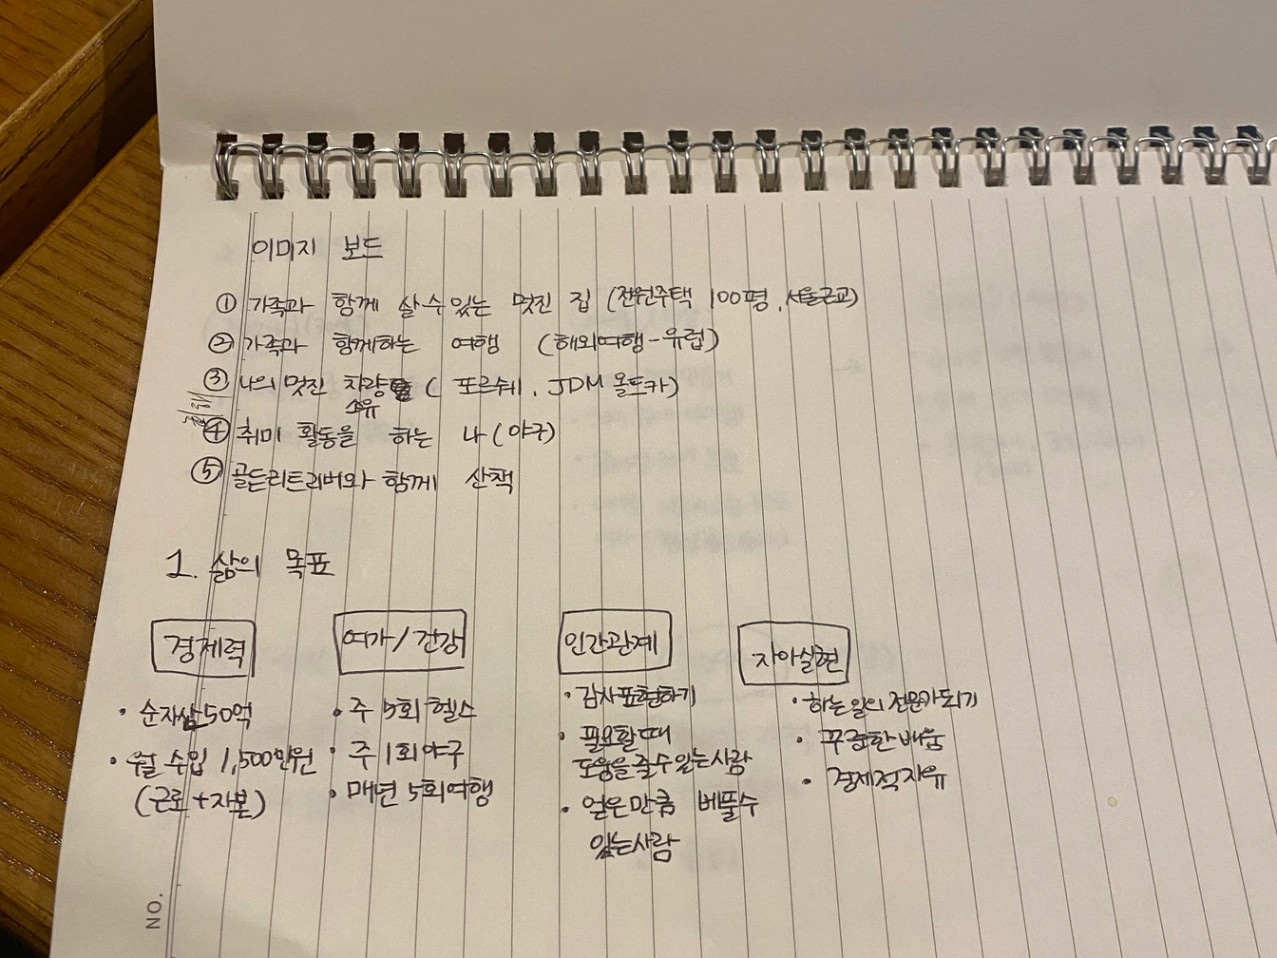 이미지 보드
① 가족과 함께 살 수 있는 멋진 집 (전원주택 100평, 서울근교)
② 가족과 함께하는 여행 (해외여행-유럽)
③ 나의 멋진 차량 (포르쉐, JDM 올드카)
소유
④ 취미 활동을 하는 나 (야구)
⑤ 골든리트리버와 함께 산책
1. 삶의 목표
경제력
• 순자산 50억
• 월 수입 1,500만원
(근로+자본)
여가/건강
• 주 5회 헬스
• 주 1회 야구
• 매년 5회 여행
인간관계
• 감사 표현하기
• 필요할 때
도움을 줄 수 있는 사람
• 얻은 만큼 베풀 수
있는 사람
자아실현
• 하는 일의 전문가 되기
• 꾸준한 배움
• 경제적 자유
NO.